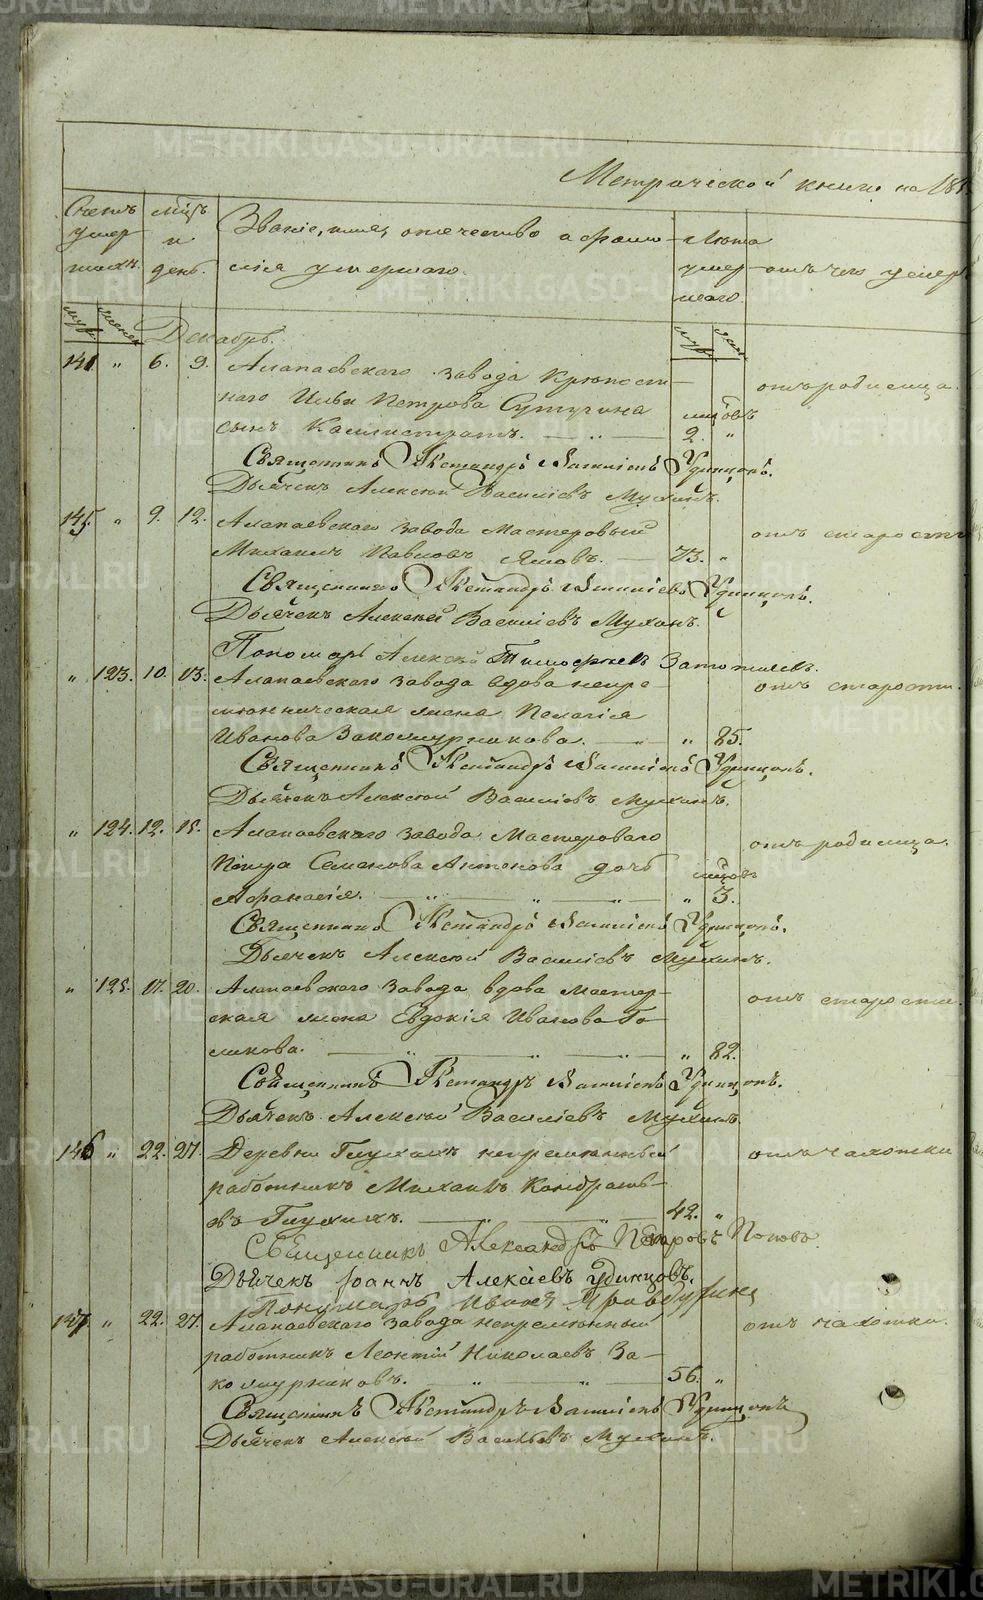 Метрической книги на 185
Счетъ умер шихъ.
мцъ и день.
Званіе, имя, отечество и фами лія умершаго.
Лѣта умер шаго.
отъ чего умеръ
муж. женск.
муж. жен.
Декабрь.
141 " 6. 9. Алапаевскаго завода Крѣпост
наго Ильи Петрова Сутугина мцовъ отъ родимца.
сынъ Каллистратъ. 2. "
Священникъ Александръ Удинцовъ.
Дьячекъ Алексѣй Василіевъ Мухинъ.
145. " 9. 12. Алапаевскаго завода Мастеровый отъ старости
Михаилъ Павловъ 73. "
Священникъ Александръ Удинцовъ.
Дьячекъ Алексѣй Василіевъ Мухинъ.
Пономарь Алексѣй Тимофеевъ
" 123. 10. 13. Алапаевскаго завода вдова непре отъ старости.
мѣнническая жена Пелагія
Иванова Закожурникова. " 85.
Священникъ Александръ Удинцовъ.
Дьячекъ Алексѣй Василіевъ Мухинъ.
" 124. 12. 15. Алапаевскаго завода Мастероваго отъ родимца.
Петра Семенова Антонова дочь мцовъ
Афанасія. " 3.
Священникъ Александръ Удинцовъ.
Дьячекъ Алексѣй Василіевъ Мухинъ.
" 125. 17. 20. Алапаевскаго завода вдова Мастер- отъ старости.
ская жена Евдокія Иванова Го-
ликова. " 82.
Священникъ Александръ Удинцовъ.
Дьячекъ Алексѣй Василіевъ Мухинъ.
146 " 22. 27. Деревни Глухихъ непремѣнный отъ чахотки
работникъ Михаилъ Кондрать-
евъ Глухихъ. 42. "
Священникъ Александръ Петровъ Поповъ.
Дьячекъ Іоаннъ Алексѣевъ Удинцовъ.
Пономарь
147. " 22. 27. Алапаевскаго завода непремѣнный отъ чахотки.
работникъ Леонтій Николаевъ За-
кожурниковъ. 56. "
Священникъ Александръ Удинцовъ
Дьячекъ Алексѣй Васильевъ Мухинъ.
METRIKI.GASO-URAL.RU